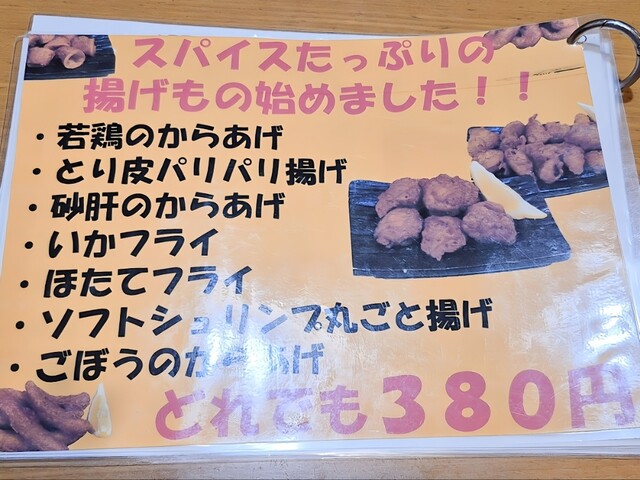 スパイスたっぷりの
揚げもの始めました！！
・若鶏のからあげ
・とり皮パリパリ揚げ
・砂肝のからあげ
・いかフライ
・ほたてフライ
・ソフトシュリンプ丸ごと揚げ
・ごぼうのからあげ
どれでも３８０円